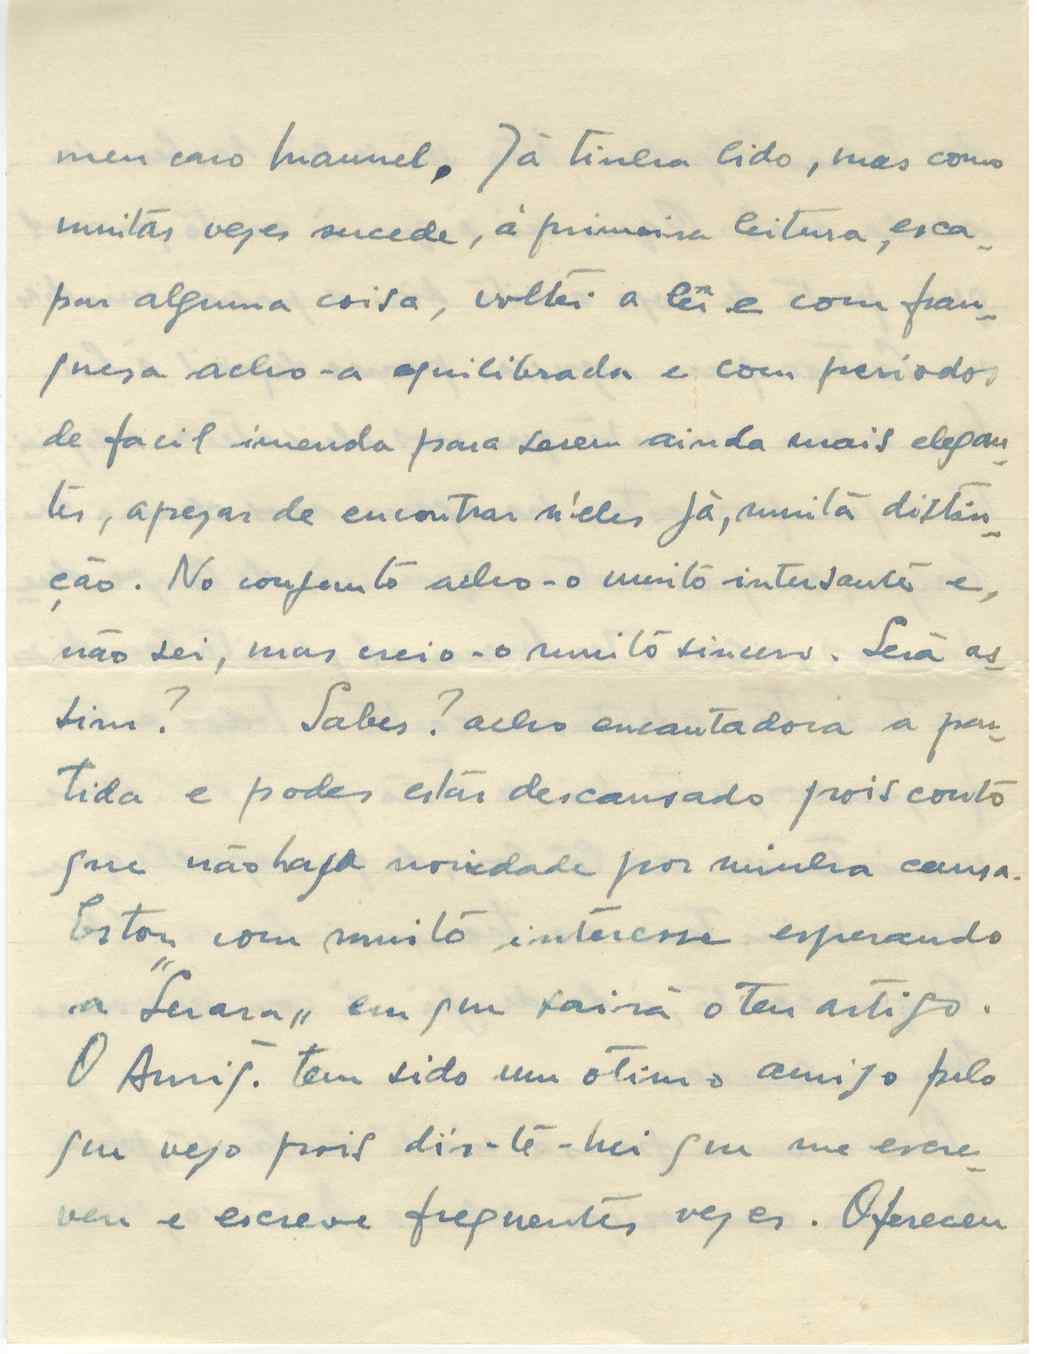 meu caro Manuel. Já tinha lido, mas como
muitas vezes sucede, á primeira leitura, esca-
par alguma coisa, voltei a lêr e com fran-
quesa acho-a equilibrada e com periodos
de facil imenda para serem ainda mais elegan-
tes, apezar de encontrar n'eles já, muita distin-
ção. No conjunto acho-o muito intersante e,
não sei, mas creio-o muito sincero. Será as-
sim? Sabes? acho encantadora a par-
tida e podes estar descansado pois conto
que não haja novidade por minha causa.
Estou com muito interesse esperando
a "Seara" em que sairá o teu artigo.
O Amig. tem sido um otimo amigo pelo
que vejo pois dir-te-hei que me escre-
veu e escreve frequentes vezes. Ofereceu